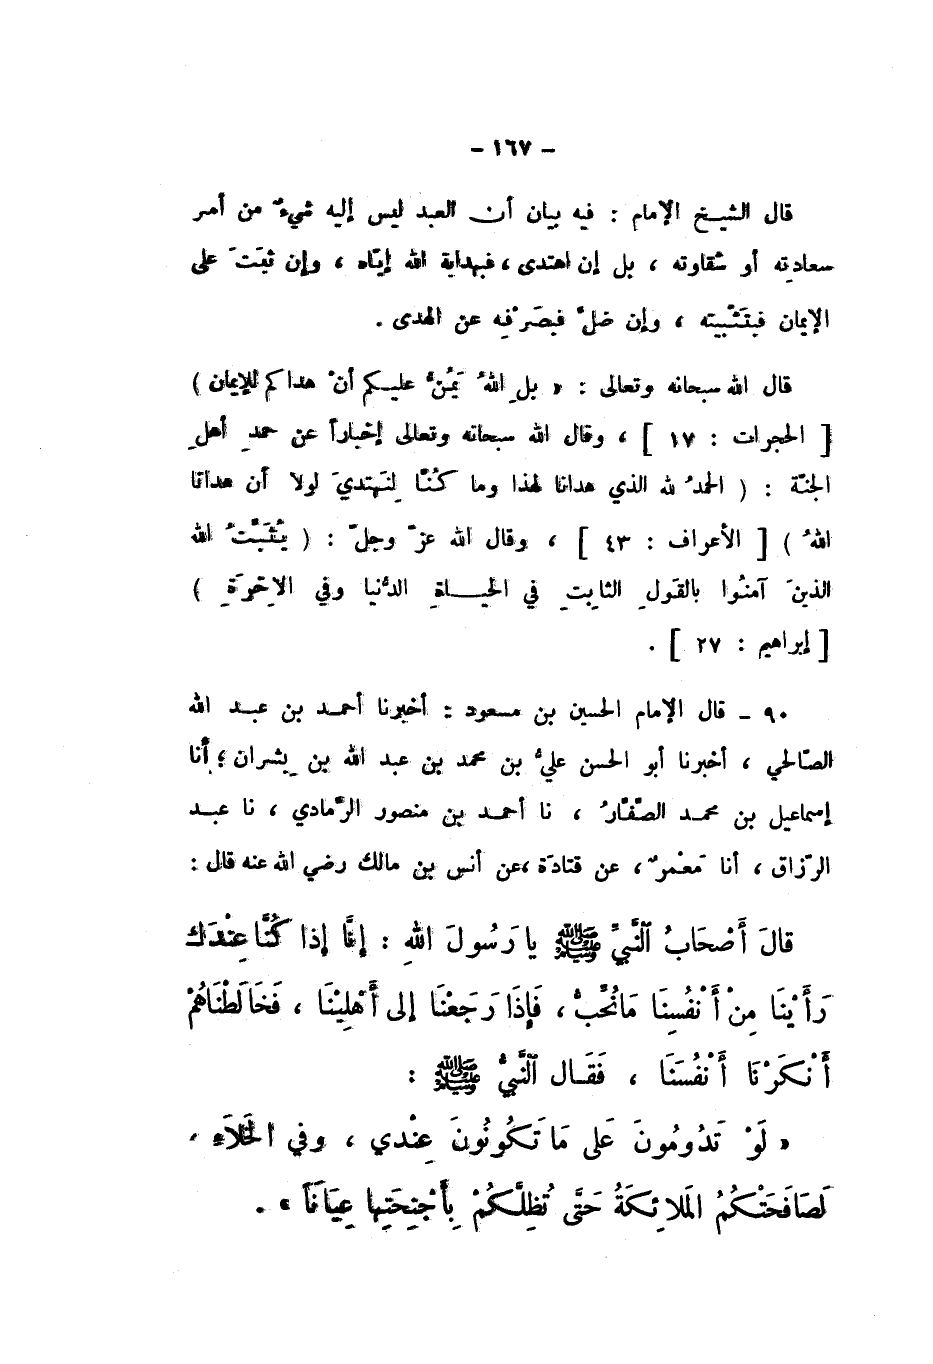 - ١٦٧ -
قال الشيخ الإمام : فيه بيان أن العبد ليس إليه شيءٌ من أمر
سعادتِه أو شقاوته ، بل إن اهتدى ، فبهداية الله إيّاه ، وإن ثبَتَ على
الإيمان فبتَثْبيته ، وإن ضلَّ فبصَرْفِه عن الهدى .
قال الله سبحانه وتعالى : « بلِ اللهُ يَمُنُّ عليكم أنْ هداكم للإيمان )
[ الحجرات : ١٧ ] ، وقال الله سبحانه وتعالى إخباراً عن حمدِ أهلِ
الجنّة : ( الحمدُ لله الذي هدانا لهذا وما كُنّا لِنَهتديَ لولا أن هدانا
اللهُ ) [ الأعراف : ٤٣ ] ، وقال الله عزّ وجلّ : ( يُثَبِّتُ الله
الذينَ آمنُوا بالقَولِ الثابِتِ في الحَيـاةِ الدُّنيا وفي الآخِرَةِ )
[ إبراهيم : ٢٧ ] .
٩٠ - قال الإمام الحسين بن مسعود : أخبرنا أحمد بن عبد الله
الصّالحي ، أخبرنا أبو الحسن عليُّ بن محمد بن عبد الله بن بِشران ؛ أنا
إسماعيل بن محمد الصّفّارُ ، نا أحمد بن منصور الرَّمادي ، نا عبد
الرزّاق ، أنا مَعْمرٌ ، عن قتادَة ،عن أنس بن مالك رضي الله عنه قال :
قالَ أَصْحابُ النَّبيِّ ﷺ يا رَسُولَ اللهِ : إنَّا إذا كُنَّا عِنْدَكَ
رَأَيْنَا مِنْ أَنْفُسِنَا مَا نُحِبُّ ، فَإِذَا رَجَعْنَا إلى أَهْلِيْنَا ، فَخَالَطْنَاهُمْ
أَنْكَرْنَا أَنْفُسَنَا ، فَقَـال النَّبيُّ ﷺ :
« لَوْ تَدُومُونَ عَلى مَا تَكُونُونَ عِنْدي ، وفي الخَلَاءِ ،
لَصَافَحَتْكُمُ المَلائِكَةُ حَتَّى تُظِلَّكُمْ بِأَجْنِحَتِها عِيَانَاً » .